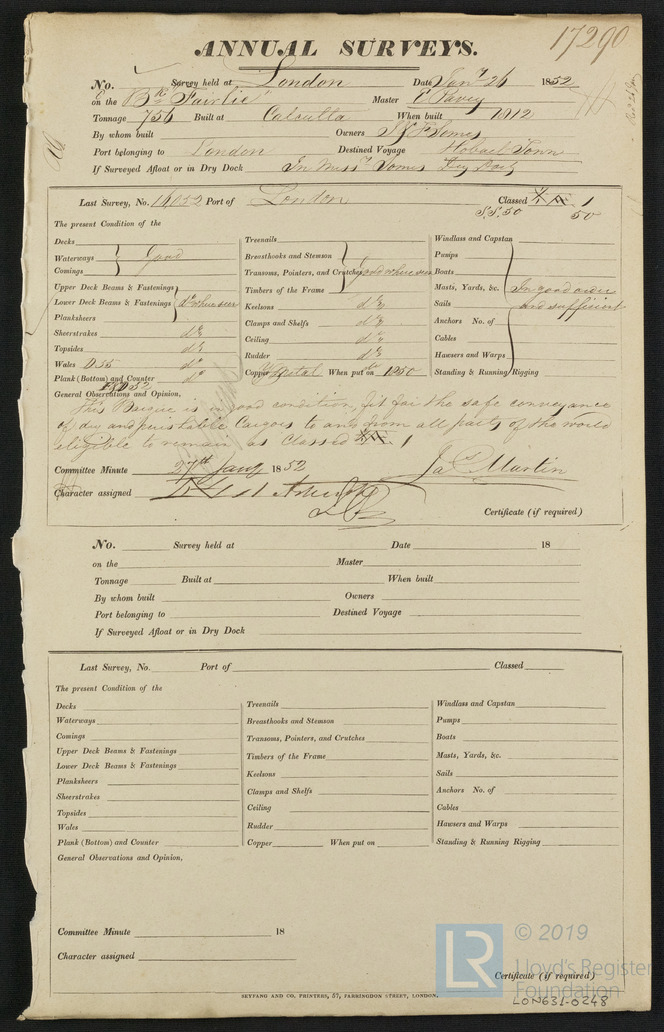 17290
ANNUAL SURVEYS.
No. Survey held at London Date Jany 26 1852
on the Bk Fairlie Master E Pavey
Tonnage 756 Built at Calcutta When built 1812
By whom built Owners Somes
Port belonging to London Destined Voyage Hobart Town
If Surveyed Afloat or in Dry Dock In Messrs Somes Dry Dock
Last Survey, No. 16052 Port of London Classed Æ 1
S.S. 50 50
The present Condition of the
Decks
Waterways Good
Comings
Upper Deck Beams & Fastenings
Lower Deck Beams & Fastenings do where seen
Planksheers
Sheerstrakes do
Topsides do
Wales D 55 do
Plank (Bottom) and Counter do
Treenails
Breasthooks and Stemson
Transoms, Pointers, and Crutches Good where seen
Timbers of the Frame
Keelsons do
Clamps and Shelfs do
Ceiling do
Rudder do
Copper Y Metal When put on 1850
Windlass and Capstan
Pumps
Boats
Masts, Yards, &c. In good order
Sails and sufficient
Anchors No. of
Cables
Hawsers and Warps
Standing & Running Rigging
General Observations and Opinion,
This Barque is in good condition, fit for the safe conveyance
of dry and perishable Cargoes to and from all parts of the world
eligible to remain as Classed Æ 1
Committee Minute 27th Jany 1852
Jas Martin
Character assigned Æ 1
Certificate (if required)
No. Survey held at Date 18
on the Master
Tonnage Built at When built
By whom built Owners
Port belonging to Destined Voyage
If Surveyed Afloat or in Dry Dock
Last Survey, No. Port of Classed
The present Condition of the
Decks
Waterways
Comings
Upper Deck Beams & Fastenings
Lower Deck Beams & Fastenings
Planksheers
Sheerstrakes
Topsides
Wales
Plank (Bottom) and Counter
Treenails
Breasthooks and Stemson
Transoms, Pointers, and Crutches
Timbers of the Frame
Keelsons
Clamps and Shelfs
Ceiling
Rudder
Copper When put on
Windlass and Capstan
Pumps
Boats
Masts, Yards, &c.
Sails
Anchors No. of
Cables
Hawsers and Warps
Standing & Running Rigging
General Observations and Opinion,
Committee Minute 18
Character assigned
Certificate (if required)
SEYFANG AND CO. PRINTERS, 57, FARRINGDON STREET, LONDON.
LR © 2019
Lloyd's Register
Foundation
LON631-0248